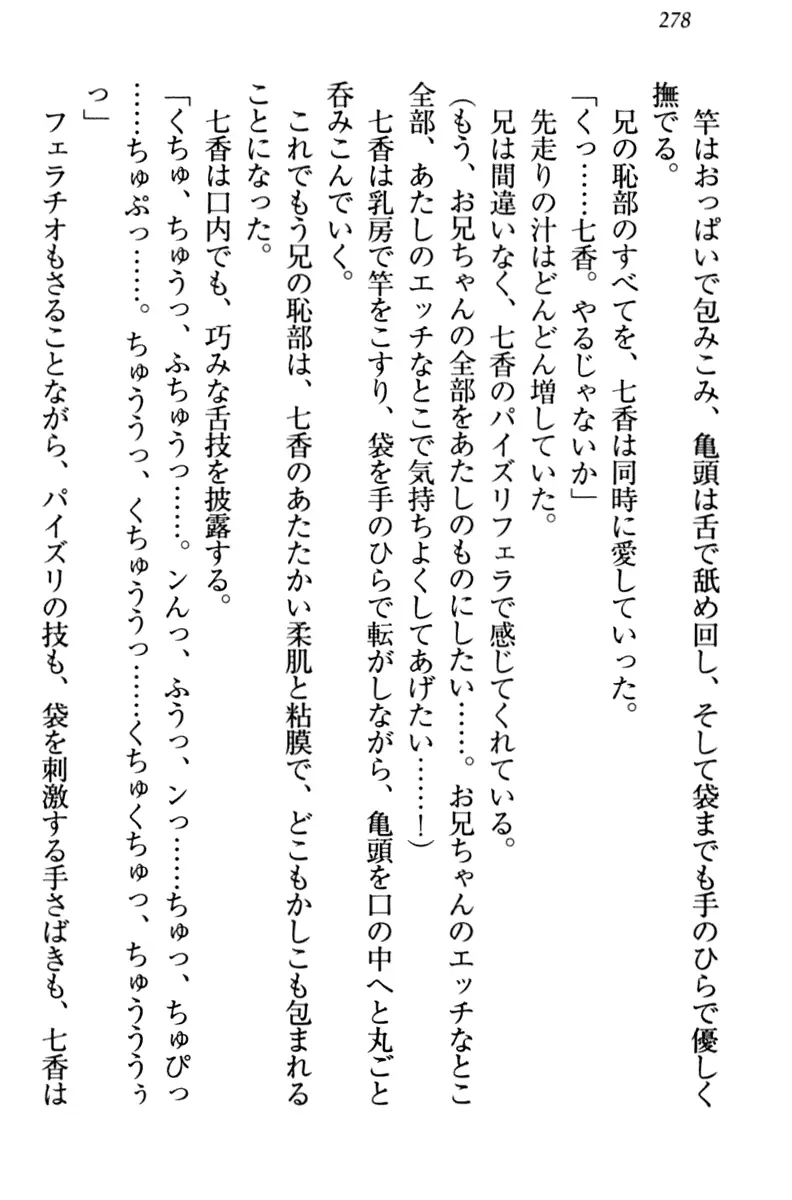 278
竿はおっぱいで包みこみ、亀頭は舌で舐め回し、そして袋までも手のひらで優しく
撫でる。
兄の恥部のすべてを、七香は同時に愛していった。
「くっ……七香。やるじゃないか」
先走りの汁はどんどん増していた。
兄は間違いなく、七香のパイズリフェラで感じてくれている。
(もう、お兄ちゃんの全部をあたしのものにしたい……。お兄ちゃんのエッチなとこ
全部、あたしのエッチなとこで気持ちよくしてあげたい……！)
七香は乳房で竿をこすり、袋を手のひらで転がしながら、亀頭を口の中へと丸ごと
呑みこんでいく。
これでもう兄の恥部は、七香のあたたかい柔肌と粘膜で、どこもかしこも包まれる
ことになった。
七香は口内でも、巧みな舌技を披露する。
「くちゅ、ちゅうっ、ふちゅうっ……。ンんっ、ふうっ、ンっ……ちゅっ、ちゅぴっ
……ちゅぷっ……。ちゅううっ、くちゅううっ……くちゅくちゅっ、ちゅうううぅ
っ」
フェラチオもさることながら、パイズリの技も、袋を刺激する手さばきも、七香は